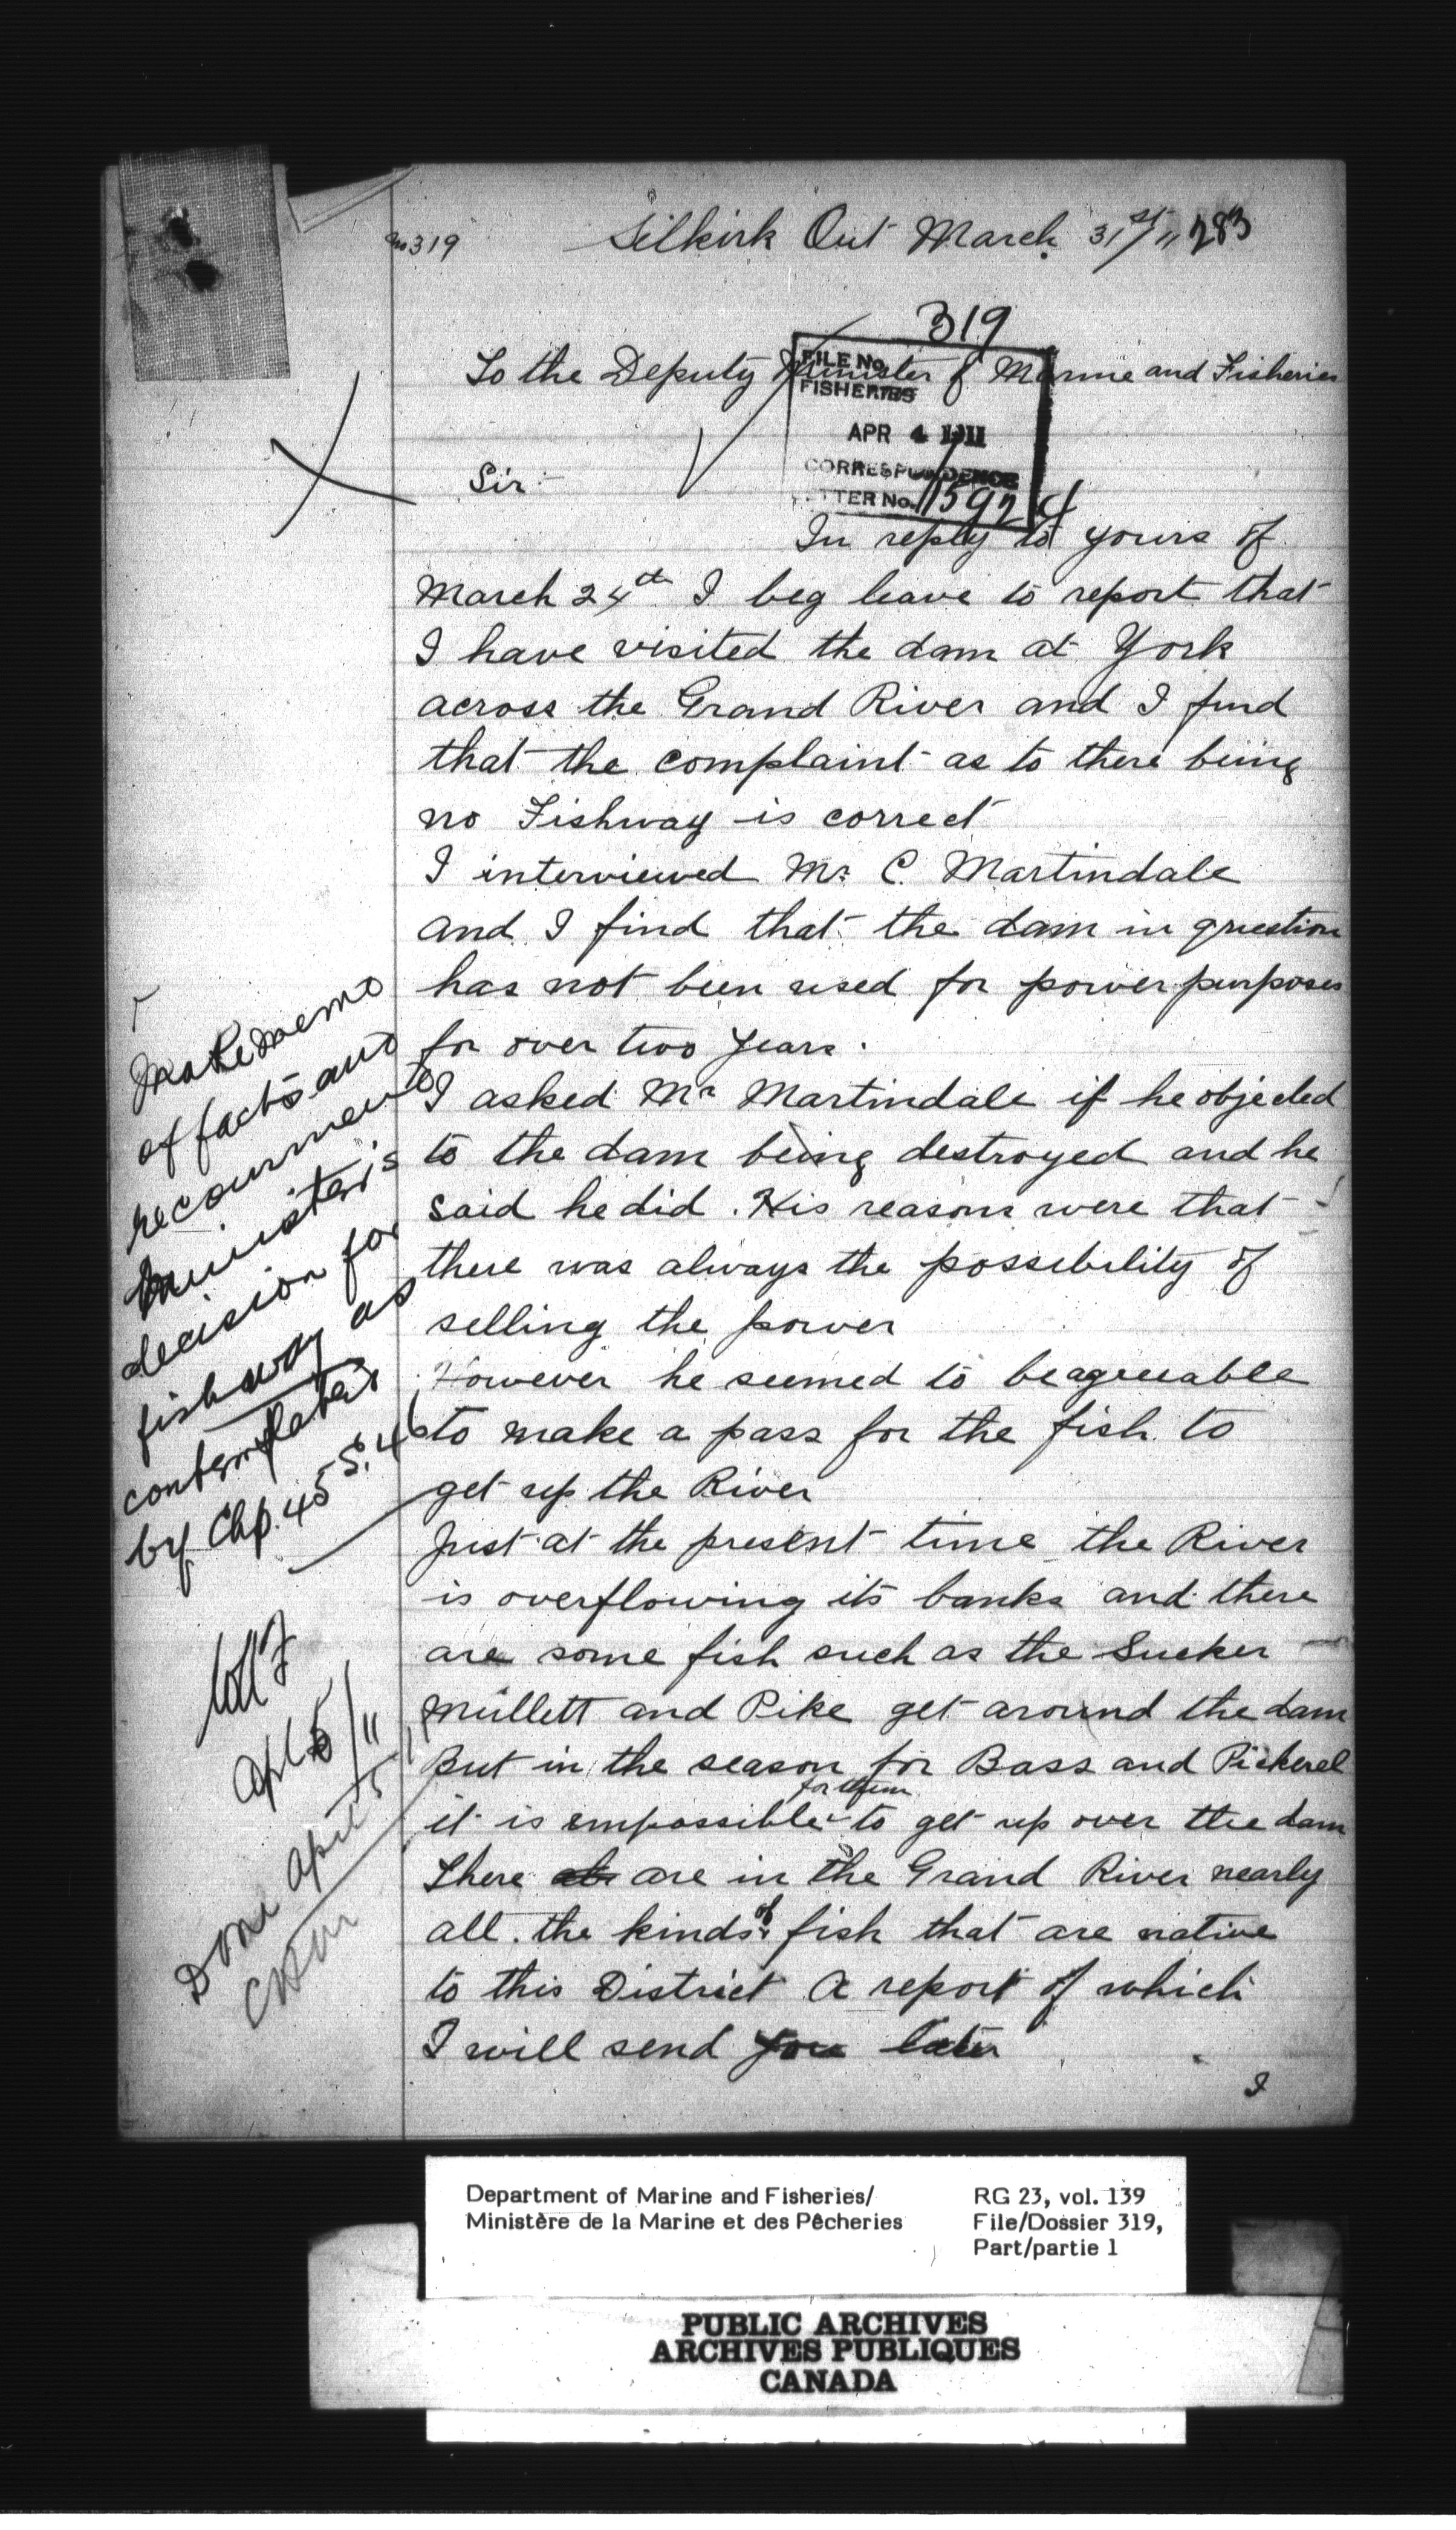 319 Selkirk Ont March 31st/11 283
319
To the Deputy Minister of Marine and Fisheries
FILE No.
FISHERIES
APR 4 1911
CORRESPONDENCE
LETTER No. 11592
Sir
In reply to yours of
March 24th I beg leave to report that
I have visited the dam at York
across the Grand River and I find
that the complaint as to there being
no Fishway is correct
I interviewed Mr C. Martindale
and I find that the dam in question
has not been used for power purposes
for over two years.
I asked Mr Martindale if he objected
to the dam being destroyed and he
said he did. His reasons were that
there was always the possibility of
selling the power
However he seemed to be agreeable
to make a pass for the fish to
get up the River
Just at the present time the River
is overflowing its banks and there
are some fish such as the Sucker
Mullett and Pike get around the dam
But in the season for Bass and Pickerel
it is empossible for them to get up over the dam
There are in the Grand River nearly
all the kinds of fish that are native
to this District A report of which
I will send you later
I
Make memo
of facts and
recommend
Minister's
decision for
fishway as
contemplated
by Chp. 45 S. 46
Apl 5/11
Done April 5/11
Department of Marine and Fisheries/
Ministère de la Marine et des Pêcheries
RG 23, vol. 139
File/Dossier 319,
Part/partie 1
PUBLIC ARCHIVES
ARCHIVES PUBLIQUES
CANADA